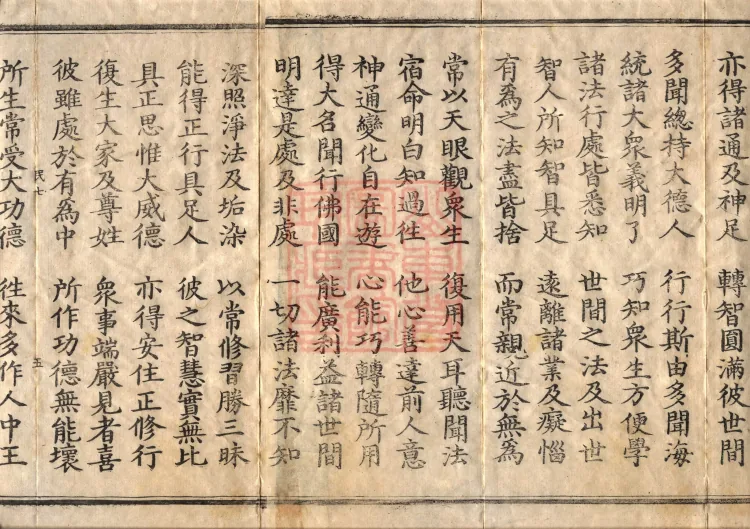 亦得諸通及神足 轉智圓滿彼世間
多聞總持大德人 行行斯由多聞海
統諸大衆義明了 巧知衆生方便學
諸法行處皆悉知 世間之法及出世
智人所知智具足 遠離諸業及癡惱
有爲之法盡皆捨 而常親近於無爲
常以天眼觀衆生 復用天耳聽聞法
宿命明白知過往 他心善達前人意
神通變化自在遊 心能巧轉隨所用
得大名聞行佛國 能廣利益諸世間
明達是處及非處 一切諸法靡不知
深照淨法及垢染 以常修習勝三昧
能得正行具足人 彼之智慧實無比
具正思惟大威德 亦得安住正修行
復生大家及尊姓 衆事端嚴見者喜
彼雖處於有爲中 所作功德無能壞
五
所生常受大功德 往來多作人中王